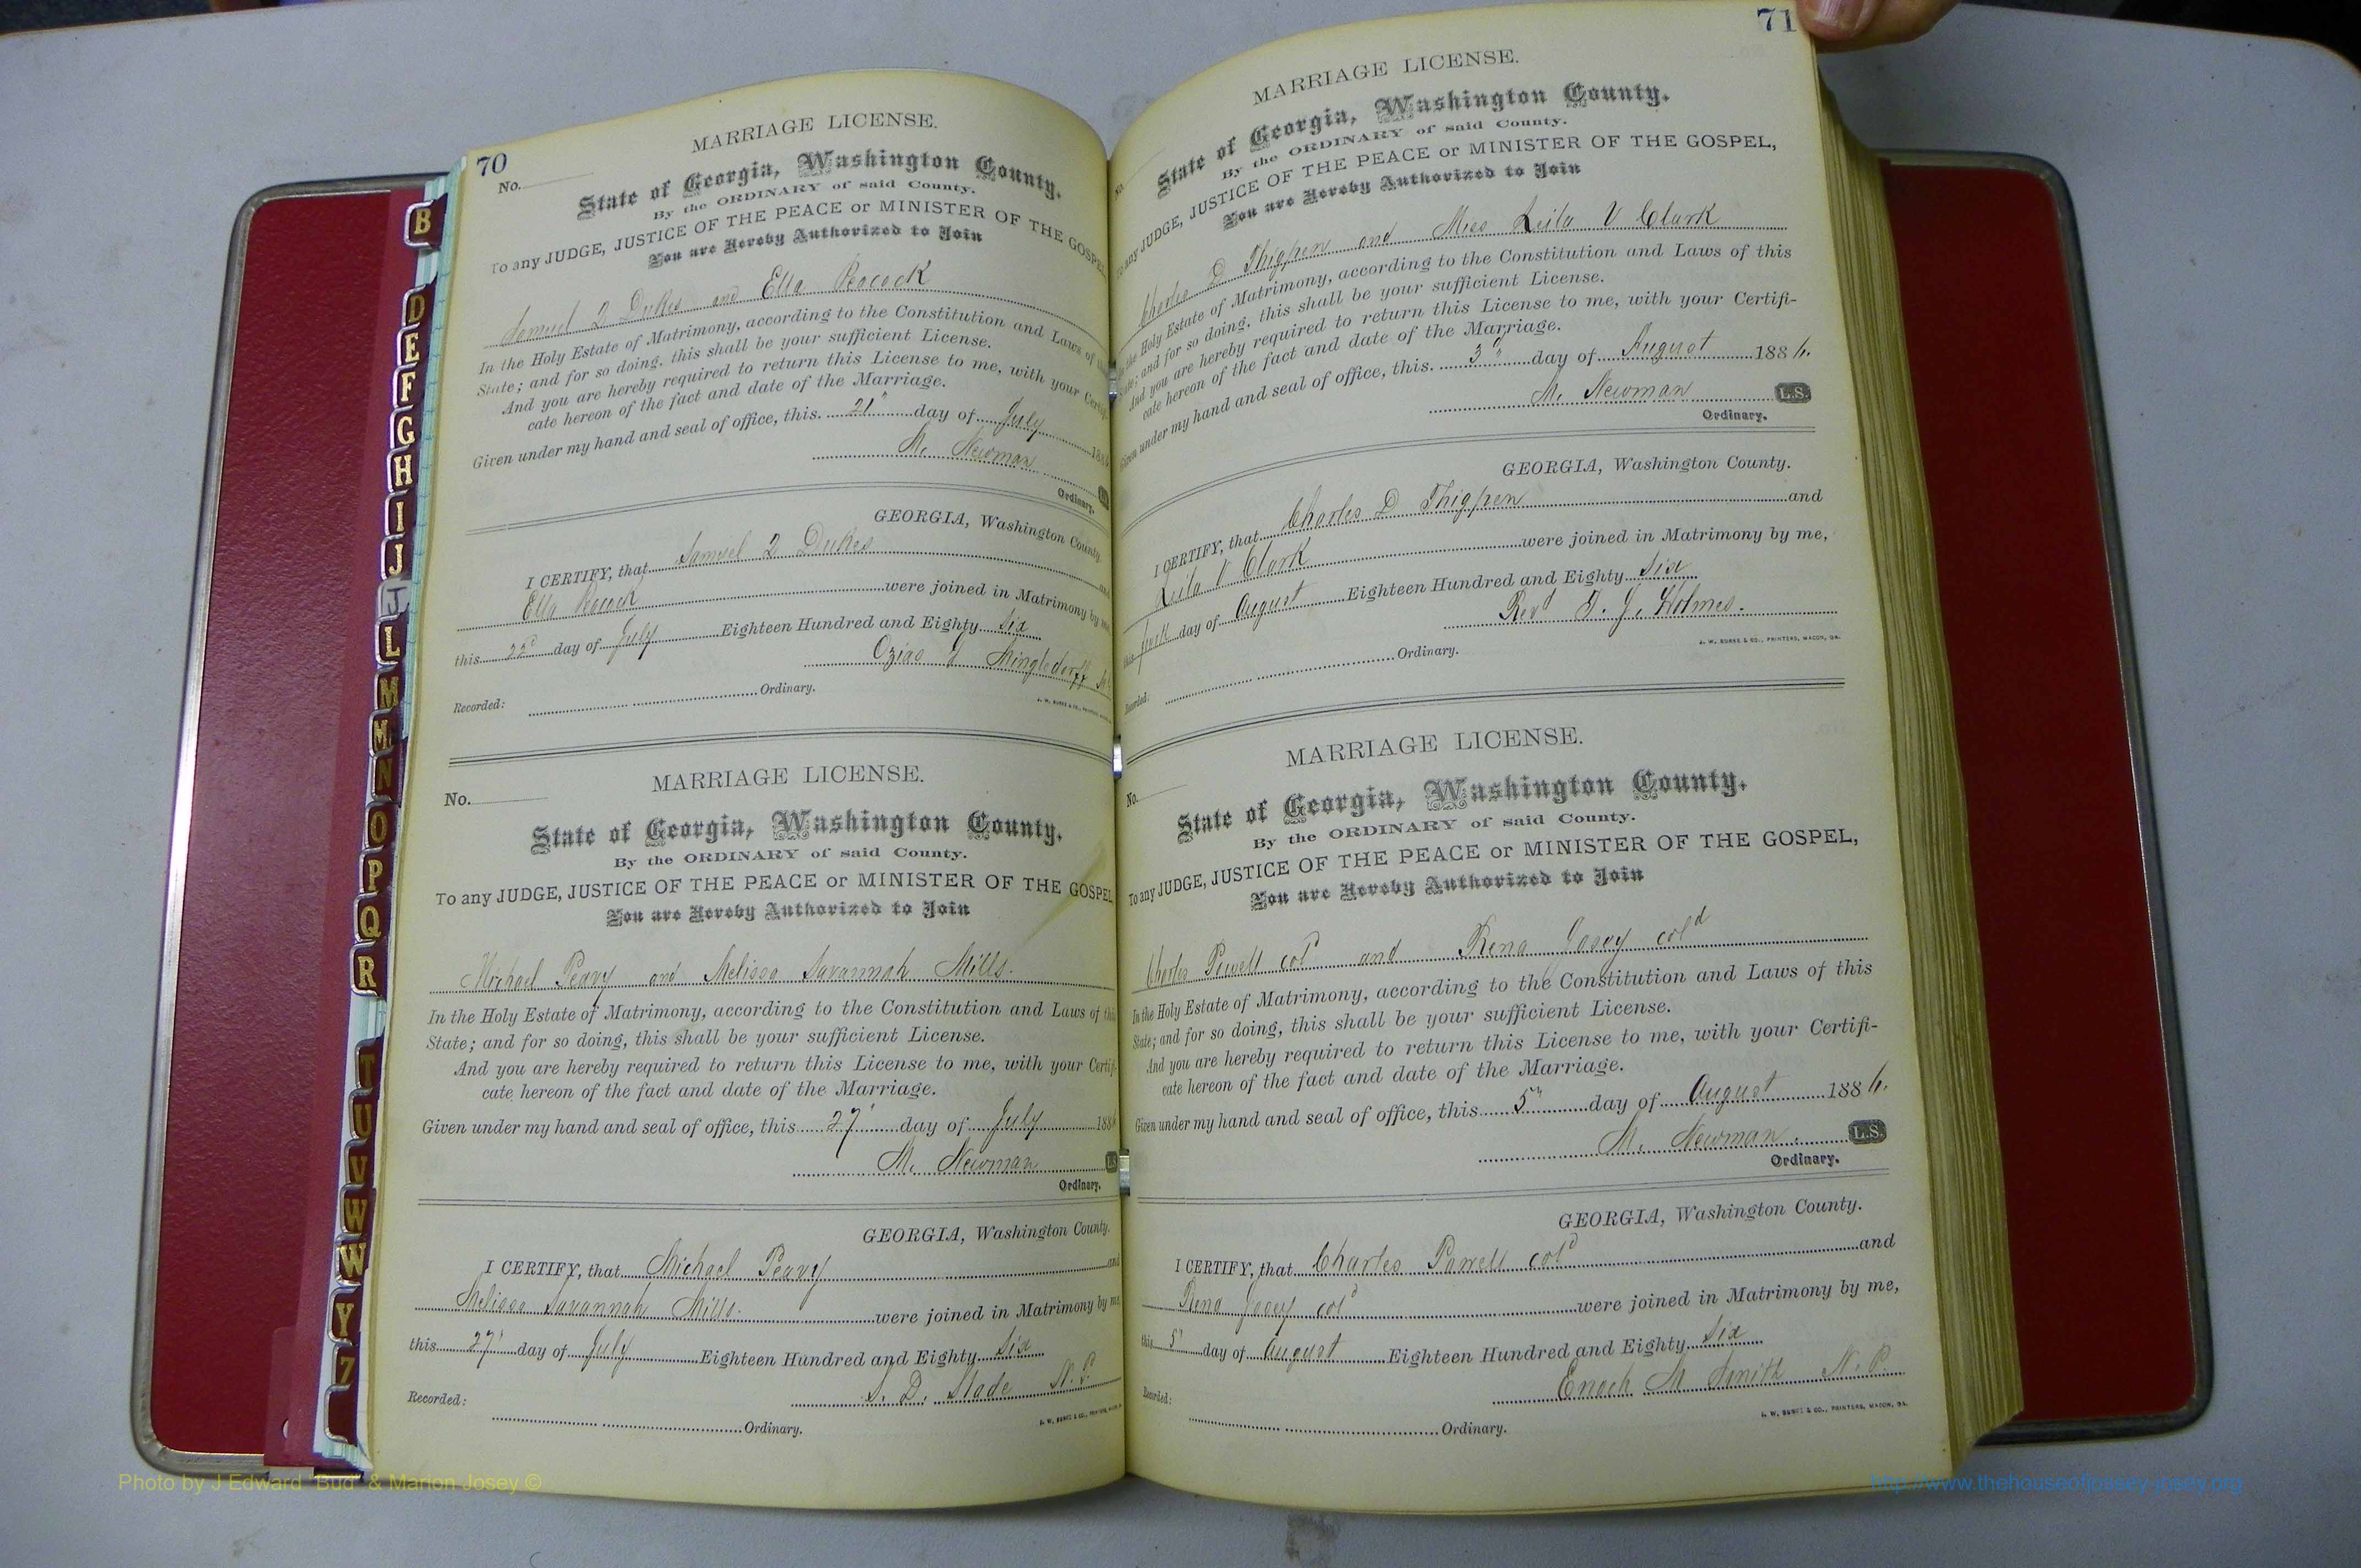 70
No.
MARRIAGE LICENSE.
State of Georgia, Washington County.
By the ORDINARY of said County.
To any JUDGE, JUSTICE OF THE PEACE or MINISTER OF THE GOSPEL
You are Hereby Authorized to Join
Samuel Dukes and Ella Peacock
In the Holy Estate of Matrimony, according to the Constitution and Laws of this
State; and for so doing, this shall be your sufficient License.
And you are hereby required to return this License to me, with your Certifi-
cate hereon of the fact and date of the Marriage.
Given under my hand and seal of office, this 21" day of July 1886
M. Newman
Ordinary.
GEORGIA, Washington County.
I CERTIFY, that Samuel Dukes and
Ella Peacock were joined in Matrimony by me
this 22d day of July Eighteen Hundred and Eighty Six
Ozias Mingledorff
Recorded: Ordinary.
J. W. BURKE & CO., PRINTERS, MACON
No.
MARRIAGE LICENSE.
State of Georgia, Washington County.
By the ORDINARY of said County.
To any JUDGE, JUSTICE OF THE PEACE or MINISTER OF THE GOSPEL
You are Hereby Authorized to Join
Michael Peavy and Melissa Savannah Mills.
In the Holy Estate of Matrimony, according to the Constitution and Laws of this
State; and for so doing, this shall be your sufficient License.
And you are hereby required to return this License to me, with your Certifi-
cate hereon of the fact and date of the Marriage.
Given under my hand and seal of office, this 27" day of July 1886
M. Newman L.S.
Ordinary.
GEORGIA, Washington County.
I CERTIFY, that Michael Peavy and
Melissa Savannah Mills. were joined in Matrimony by me
this 27" day of July Eighteen Hundred and Eighty Six
S. D. Slade N.P.
Recorded: Ordinary.
J. W. BURKE & CO., PRINTERS, MACON
71
No.
MARRIAGE LICENSE.
State of Georgia, Washington County.
By the ORDINARY of said County.
To any JUDGE, JUSTICE OF THE PEACE or MINISTER OF THE GOSPEL,
You are Hereby Authorized to Join
Charles D Thigpen and Miss Leila V Clark
In the Holy Estate of Matrimony, according to the Constitution and Laws of this
State; and for so doing, this shall be your sufficient License.
And you are hereby required to return this License to me, with your Certifi-
cate hereon of the fact and date of the Marriage.
Given under my hand and seal of office, this. 3" day of August 1886.
M. Newman L.S.
Ordinary.
GEORGIA, Washington County.
I CERTIFY, that Charles D Thigpen and
Leila V Clark were joined in Matrimony by me,
this day of August Eighteen Hundred and Eighty Six
Revd Holmes.
Recorded: Ordinary.
J. W. BURKE & CO., PRINTERS, MACON, GA.
No.
MARRIAGE LICENSE.
State of Georgia, Washington County.
By the ORDINARY of said County.
To any JUDGE, JUSTICE OF THE PEACE or MINISTER OF THE GOSPEL,
You are Hereby Authorized to Join
Charles Powell cold and Rena Josey cold
In the Holy Estate of Matrimony, according to the Constitution and Laws of this
State; and for so doing, this shall be your sufficient License.
And you are hereby required to return this License to me, with your Certifi-
cate hereon of the fact and date of the Marriage.
Given under my hand and seal of office, this 5" day of August 1886.
M. Newman. L.S.
Ordinary.
GEORGIA, Washington County.
I CERTIFY, that Charles Powell cold and
Rena Josey cold were joined in Matrimony by me,
this 5" day of August Eighteen Hundred and Eighty Six
Enoch M Smith N.P.
Recorded: Ordinary.
J. W. BURKE & CO., PRINTERS, MACON, GA.
B
D
E
F
G
H
I
J
J
L
M
M
N
O
P
Q
R
T
U
V
W
W
Y
Z
Photo by J Edward "Bud" & Marion Josey ©
http://www.thehouseofjossey-josey.org